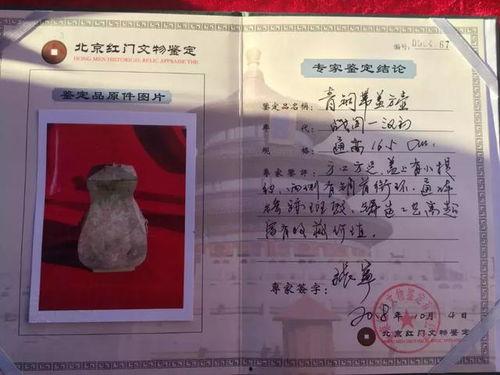 北京红门文物鉴定
HONG MEN HISTORICAL RELIC APPRAISE THE
鉴定品原件图片
编号:
专家鉴定结论
鉴定品名称: 青铜带盖方壶
年代: 战国—汉初
规格: 通高16.5 cm
专家鉴评: 方口方足,盖上有小提
两侧有铺首衔环,通体
绿锈斑驳,铸造工艺高超
专家签字:
2018年10月4日
北京红门文物鉴定